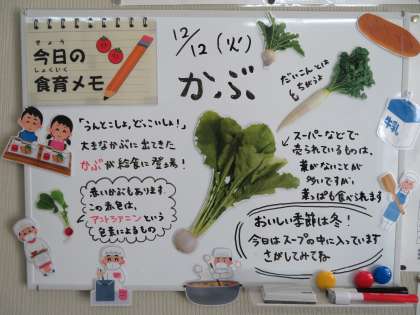 きょう
今日の
しょくいく
食育メモ
12/12(火)
かぶ
だいこんとは
ちがうよ
「うんとこしょ、どっこいしょ！」
大きなかぶに出てきた
かぶが給食に登場！
赤いかぶもあります
この赤色は、
アントシアニンという
色素によるもの
スーパーなどで
売られているものは、
葉がないことが
多いですが、
葉っぱも食べられます
おいしい季節は冬！
今日はスープの中に入っています
さがしてみてね